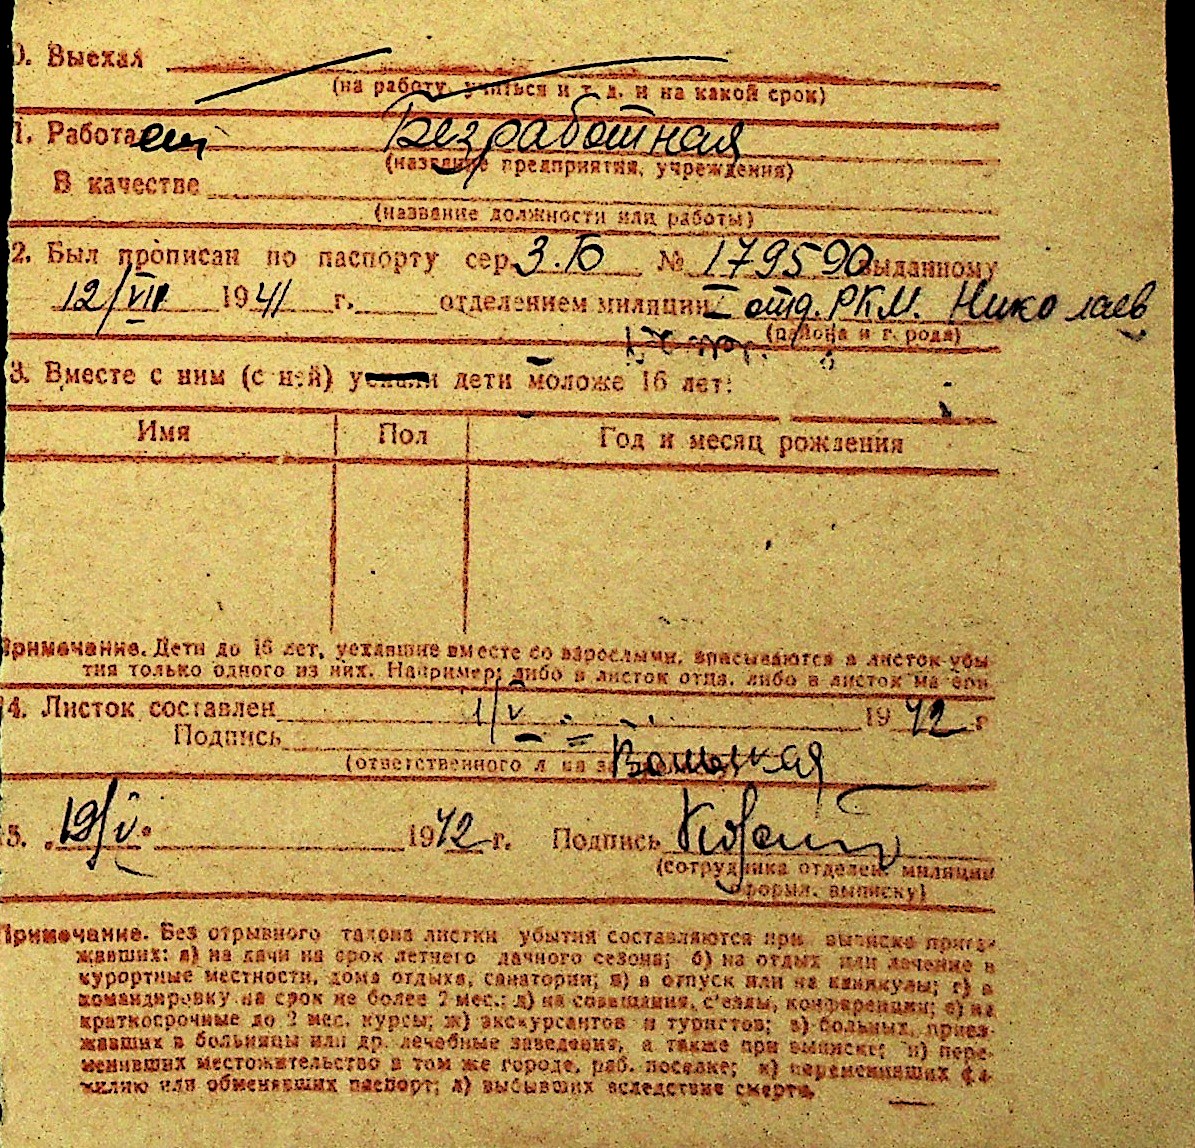 0. Выехал
(на работу, учиться и т. д. и на какой срок)
1. Работает Безработная
(название предприятия, учреждения)
В качестве
(название должности или работы)
2. Был прописан по паспорту сер. 3.Ю № 179590 выданному
12/VII 1941 г. отделением милиции I отд. РКМ. Николаев
(района и города)
3. Вместе с ним (с ней) уехали дети моложе 16 лет:
Имя Пол Год и месяц рождения
Примечание. Дети до 16 лет, уехавшие вместе со взрослыми, вписываются в листок убы-
тия только одного из них. Например: либо в листок отца, либо в листок матери
4. Листок составлен 1/V 1942 г
Подпись
(ответственного л на за
5. 19/V. 1942 г. Подпись
(сотрудника отделен. милиции
оформл. выписку)
Примечание. Без отрывного талона листки убытия составляются при выписке приез-
жавших: а) на дачи на срок летнего дачного сезона; б) на отдых или лечение в
курортные местности, дома отдыха, санатории; в) в отпуск или на каникулы; г) в
командировку на срок не более 2 мес.; д) на совещания, с'езды, конференции; е) на
краткосрочные до 2 мес. курсы; ж) экскурсантов и туристов; з) больных, приез-
жавших в больницы или др. лечебные заведения, а также при выписке; и) пере-
менивших местожительство в том же городе, раб. поселке; к) переменивших фа-
милию или обменявших паспорт; л) выбывших вследствие смерти.